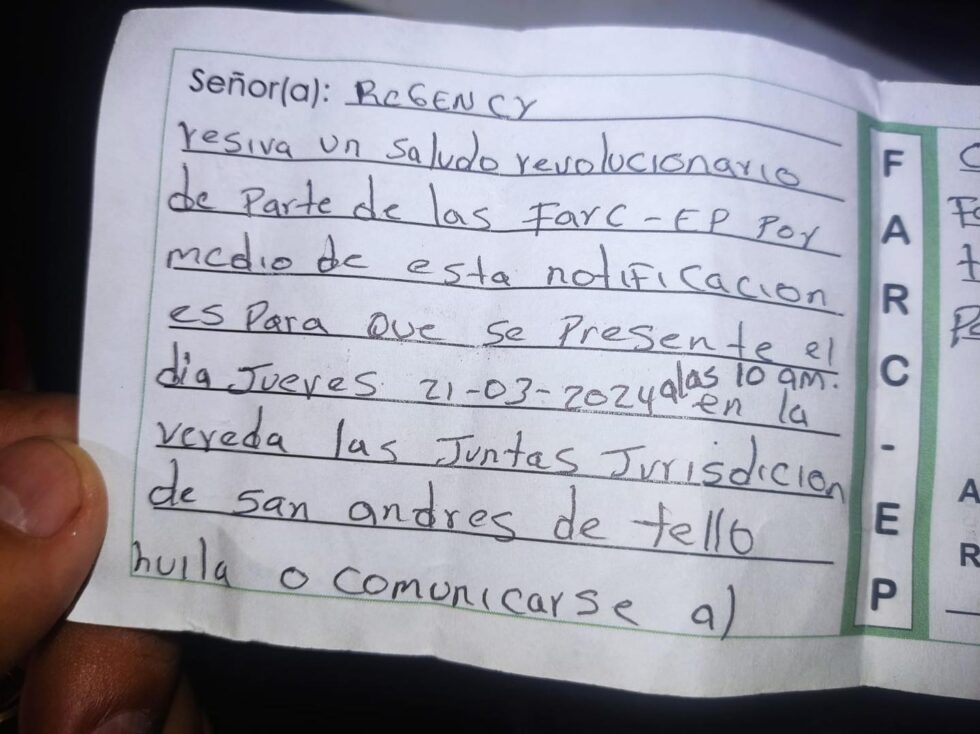 Señor(a): RCGENCY
resiva un saludo revolucionario
de Parte de las Farc-EP Por
medio de esta notificacion
es Para que se Presente el
dia Jueves 21-03-2024 alas 10 am.
en la
vereda las Juntas Jurisdicion
de san andres de tello
huila o comunicarse al
F
A
R
C
-
E
P
A
R